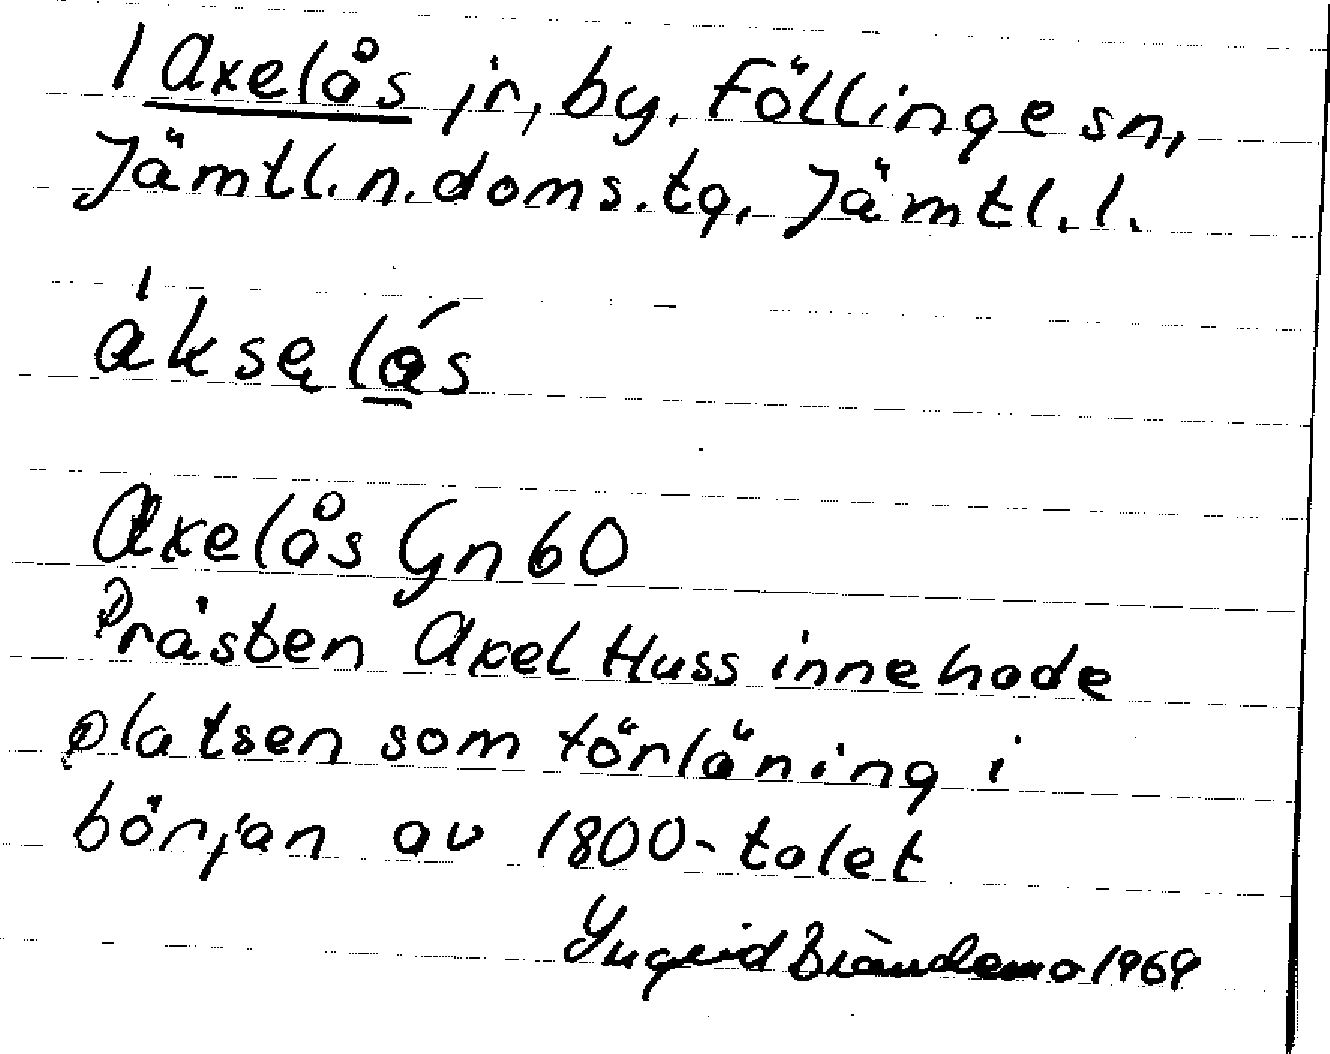 1 Axelås jr, by, Föllinge sn,
Jämtl. n. doms. tg, Jämtl. l.
áksęlás
Axelås Gn 60
Prästen Axel Huss innehade
platsen som förläning i
början av 1800-talet
Ingrid Brändemo 1969